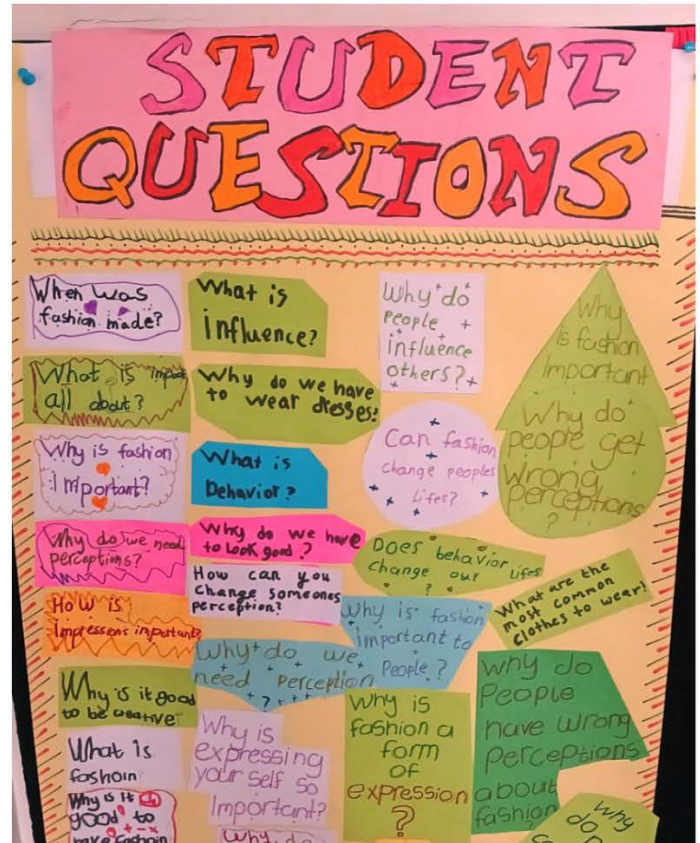 STUDENT
QUESTIONS
When was
fashion made?
What is
all about?
Why is fashion
Important?
Why do we need
perceptions?
How is
Impressions important?
Why is it good
to be creative
What is
fashoin
Why is it
good to
have fashoin
What is
influence?
Why do we have
to wear dresses?
What is
behavior?
Why do we have
to look good?
How can you
change someones
perception?
Why do we
need perception
?
Why is
expressing
your self so
Important?
Why do
Why do
people
influence
others?
Can fashion
change peoples
lifes?
Does behavior
change our lifes
?
Why is fashion
important to
People?
Why is
fashion a
form
of
expression
?
Why
is fashion
Important
Why do
people get
Wrong
perceptions
?
What are the
most common
clothes to wear!
Why do
People
have wrong
Perceptions
about
fashion
Why
do